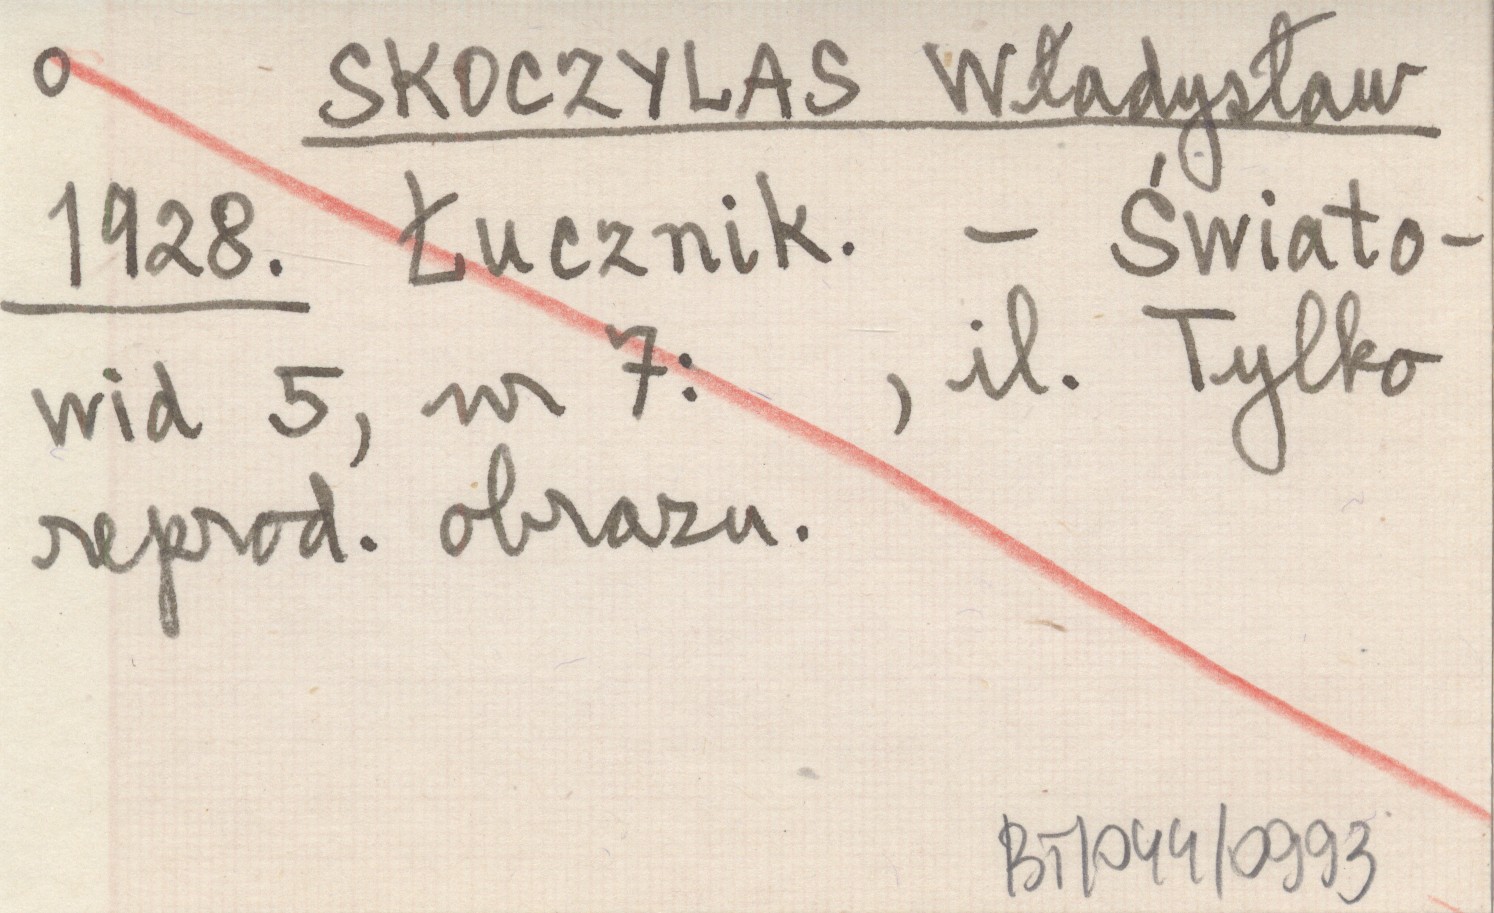 o SKOCZYLAS Władysław
1928. Łucznik. - Świato-
wid 5, nr 7: , il. Tylko
reprod. obrazu.
BT/044/0993